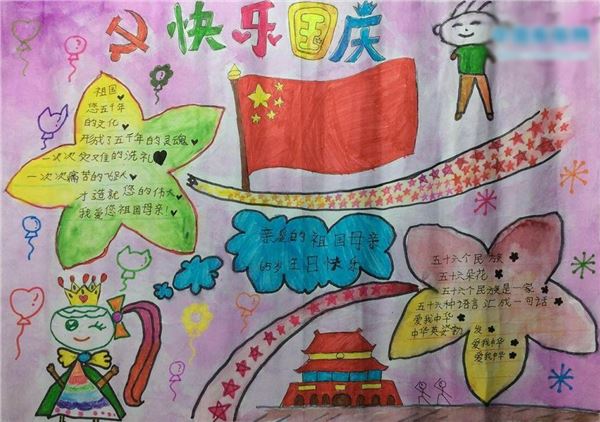 快乐国庆
祖国
您五千年
的文化
形成了五千年的灵魂
一次次灾难的洗礼
一次次痛苦的飞跃
才造就您的伟大
我爱您祖国母亲!
亲爱的祖国母亲
65岁生日快乐
五十六个民族
五十六朵花
五十六个民族是一家
五十六种语言汇成一句话
爱我中华
中华英姿勃发
爱我中华
爱我中华